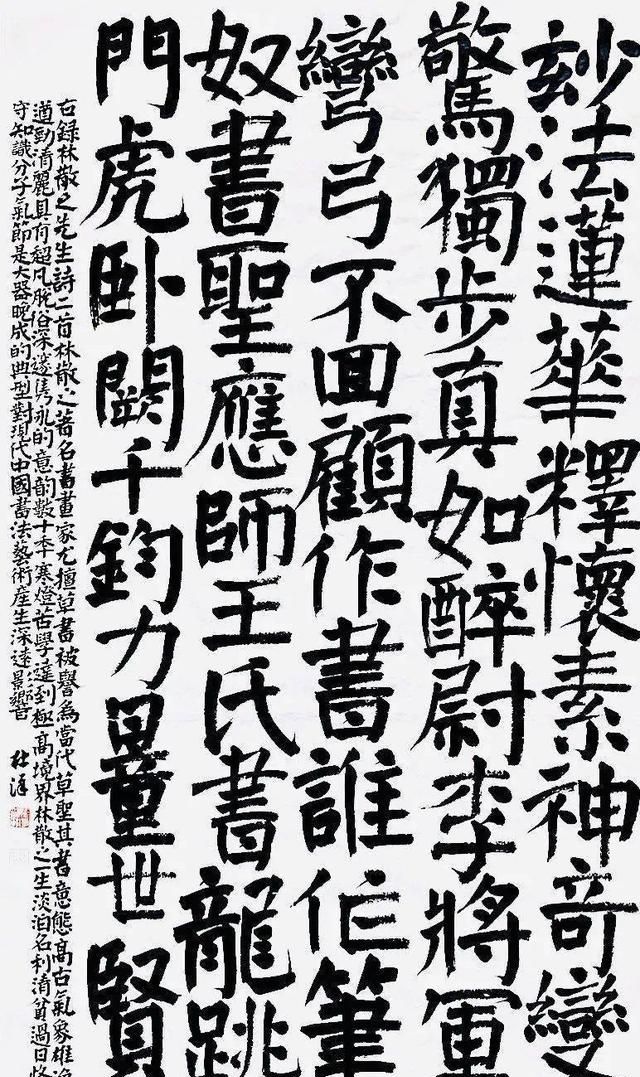 玅法蓮華釋懷素神奇變
驚獨步真如醉尉李將軍
彎弓不回顧作書誰作筆
奴書聖應師王氏書龍跳
門虎卧闕千鈞力量世賢
右錄林散之先生詩二首林散之著名書畫家尤擅草書被譽為當代草聖其書意態高古氣象雄渾
遒勁清麗具有超凡脫俗深邃雋永的意韵數十年寒燈苦學達到極高境界林散之一生淡泊名利清貧過日恪
守知識分子氣節是大器晚成的典型對現代中國書法藝術產生深遠影響